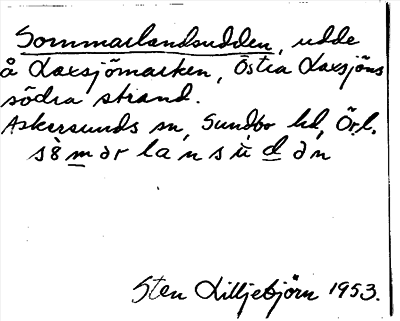 Sommarlandsudden, udde
å Laxsjömarken, Östra Laxsjöns
södra strand.
Askersunds sn, Sundbo hd, Ör.l.
Sten Lilljebjörn 1953.